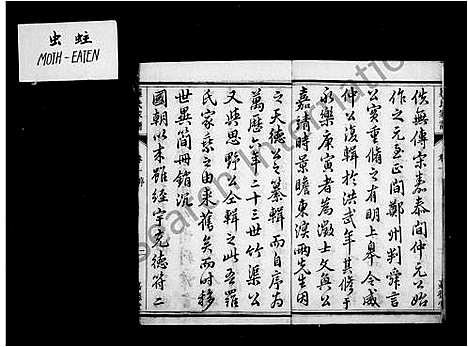 虫蛀
MOTH-EATEN
佚無傳宗嘉泰間仲元公始
作之元至正間鄭州判
公實重脩之有明上皋令威
仲公復輯於洪武年其修于
永樂庚寅者為澂士文與公
嘉靖時景瞻東溟兩先生因
之天德公之纂輯而自序為
萬歷年二十三世竹渠公
又與思野公全輯之此吾羅
氏家乘之由來舊矣而時移
世異簡冊銷沉
國朝以來雖經宇克德符二
Research International